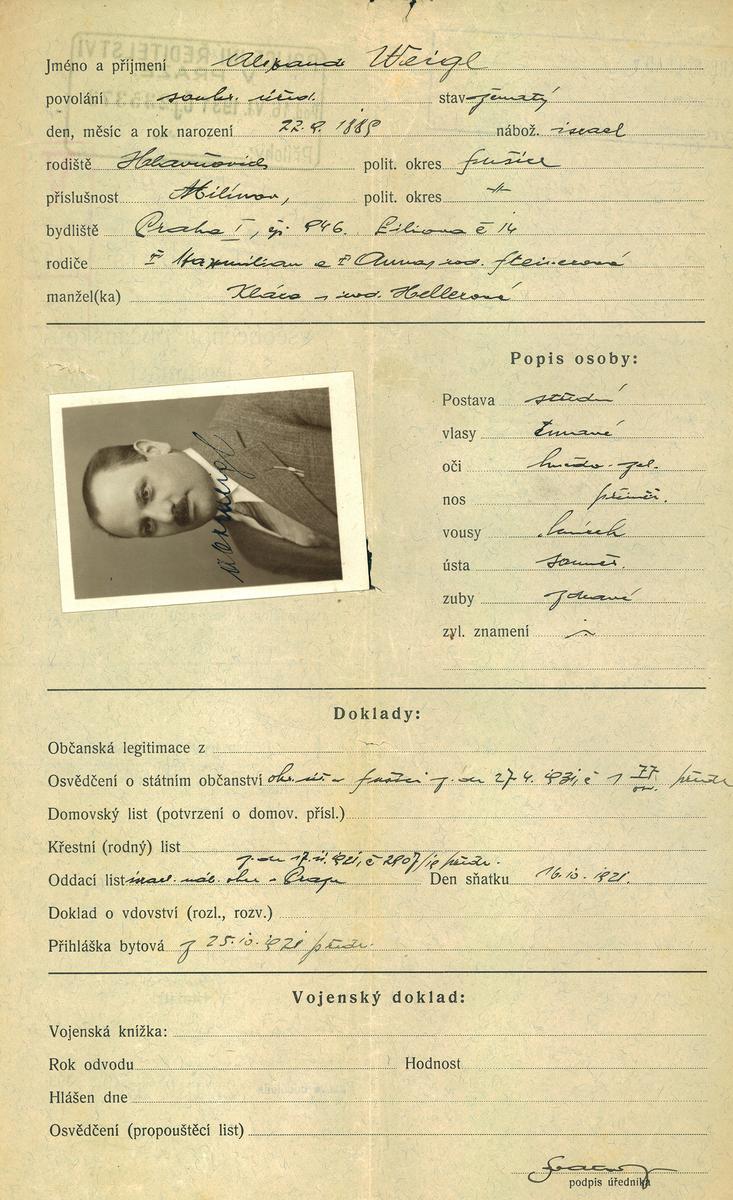 Jméno a příjmení Alexandr Weigl
povolání soukr. úřed. stav ženatý
den, měsíc a rok narození 22.9.1889 nábož. israel
rodiště polit. okres Sušice
příslušnost polit. okres "
bydliště Praha I, čp. 946. Liliova č 14
rodiče † Maxmilian a † Anna, roz. Steinerová
manžel(ka) Klára, roz. Hellerová
Popis osoby:
Postava střední
vlasy tmavé
oči hnědo-zel.
nos přiměř.
vousy knírek
ústa souměr.
zuby zdravé
zvl. znamení
Doklady:
Občanská legitimace z
Osvědčení o státním občanství z. dne 27.4.1931, č
Domovský list (potvrzení o domov. přísl.)
Křestní (rodný) list
Oddací list israel. náb. obec v Praze Den sňatku 16.10.1921.
Doklad o vdovství (rozl., rozv.)
Přihláška bytová z 25.10.1921
Vojenský doklad:
Vojenská knížka:
Rok odvodu Hodnost
Hlášen dne
Osvědčení (propouštěcí list)
podpis úředníka